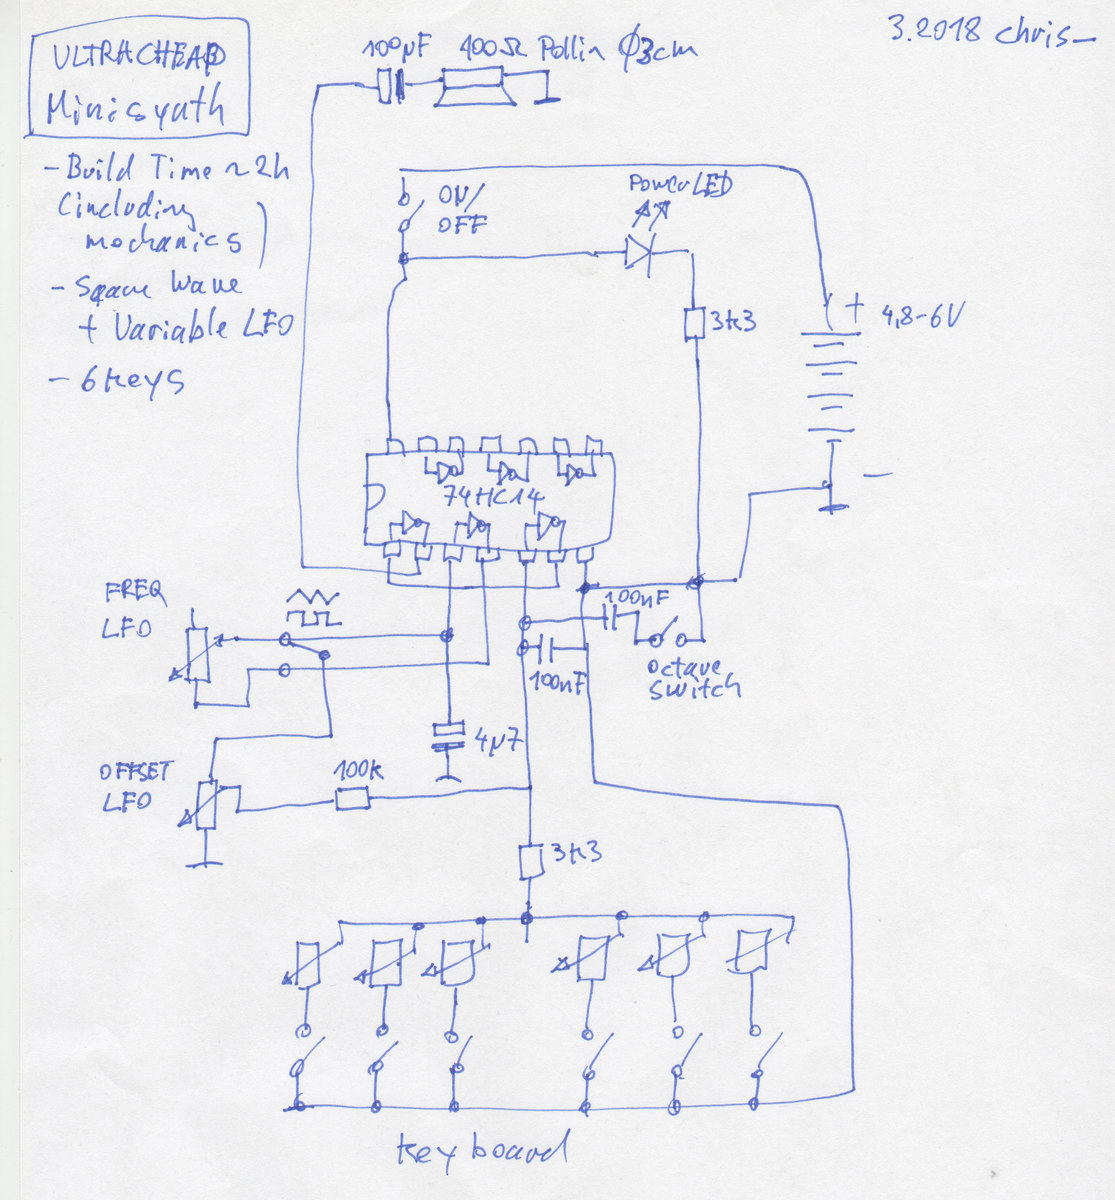 ULTRACHEAP
Minisynth
3.2018 chris_
100µF 400Ω Pollin Ø3cm
- Build Time ~2h
(including
mechanics)
- Sqaue Wave
+ Variable LFO
- 6 keys
ON/
OFF
Power LED
3k3
+ 4,8-6V
-
74HC14
FREQ
LFO
100nF
100nF
Octave
Switch
4µ7
OFFSET
LFO
100k
3k3
keyboard